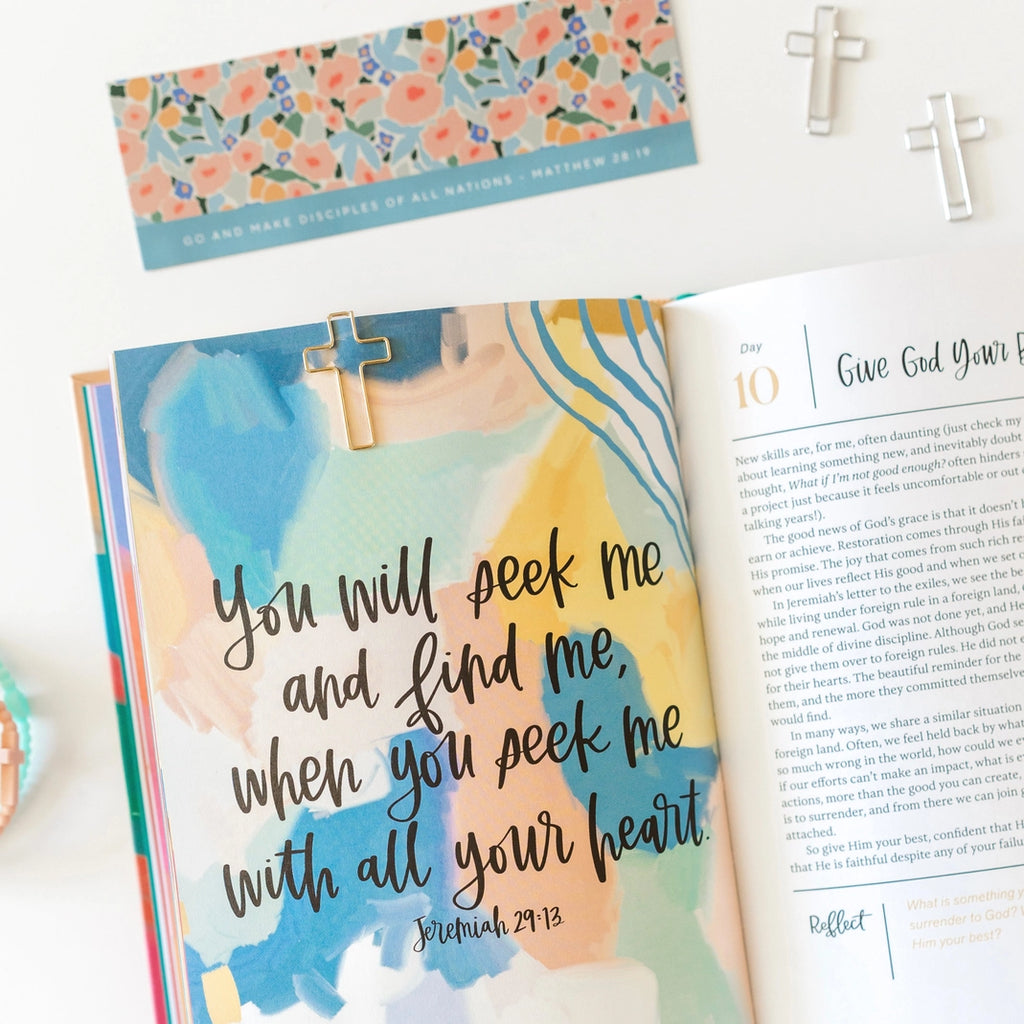 GO AND MAKE DISCIPLES OF ALL NATIONS - MATTHEW 28:19
You will seek me
and find me,
when you seek me
with all your heart.
Jeremiah 29:13
Day
10
Give God Your
New skills are, for me, often daunting (just check my
about learning something new, and inevitably doubt
thought, What if I'm not good enough? often hinders
a project just because it feels uncomfortable or out
talking years!).
The good news of God's grace is that it doesn't
earn or achieve. Restoration comes through His
His promise. The joy that comes from such rich
when our lives reflect His good and when we set
In Jeremiah's letter to the exiles, we see the
while living under foreign rule in a foreign land,
hope and renewal. God was not done yet, and
the middle of divine discipline. Although God
not give them over to foreign rules. He did not
for their hearts. The beautiful reminder for the
them, and the more they committed themselves
would find.
In many ways, we share a similar situation
foreign land. Often, we feel held back by what
so much wrong in the world, how could we
if our efforts can't make an impact, what is
actions, more than the good you can create,
is to surrender, and from there we can join
attached.
So give Him your best, confident that
that He is faithful despite any of your
Reflect
What is something
surrender to God?
Him your best?